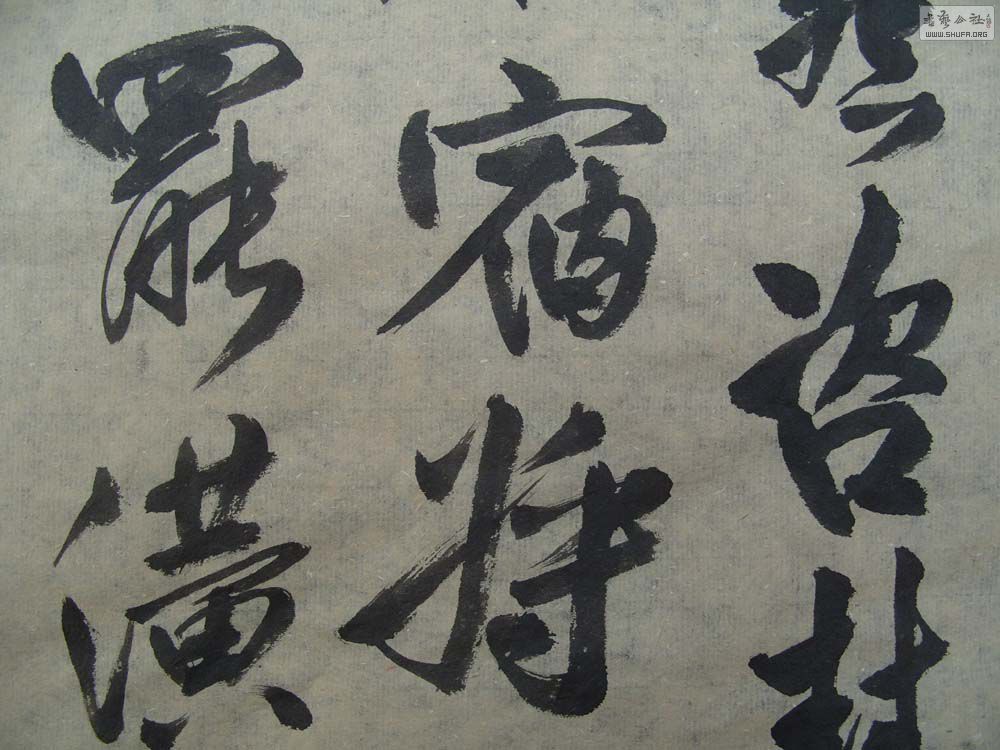 咨
宿將
罷潢
書藝公社
WWW.SHUFA.ORG